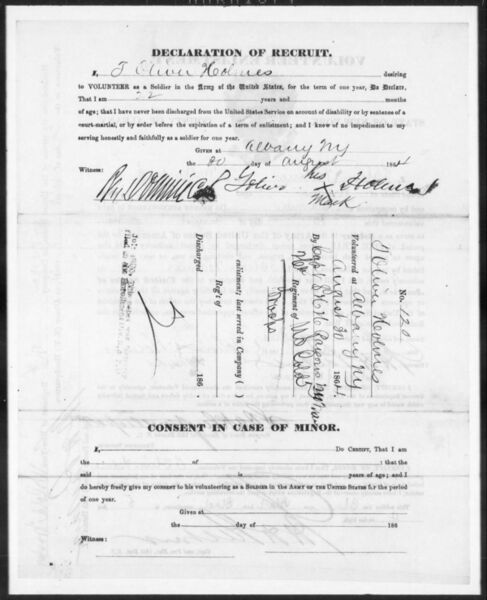 DECLARATION OF RECRUIT.
I, T Oliver Holmes desiring
to VOLUNTEER as a Soldier in the Army of the United States, for the term of one year, Do Declare,
That I am 32 years and months
of age; that I have never been discharged from the United States Service on account of disability or by sentence of a
court-martial, or by order before the expiration of term of enlistment; and I know of no impediment to my
serving honestly and faithfully as a soldier for one year.
Given at Albany NY
the 20 day of August 1864
Witness:
his
T Oliver X Holmes
Mark
No. 120
T Oliver Holmes
Volunteered at Albany NY
August 20 1864
By Capt
Regiment of US Cold
Troops
enlistment; last served in Company ( )
Reg't of
Discharged 186
CONSENT IN CASE OF MINOR.
I, Do Certify, That I am
the of ; that the
said is years of age; and I
do hereby freely give my consent to his volunteering as a SOLDIER in the ARMY OF THE UNITED STATES for the period
of one year.
Given at
the day of 186
Witness: